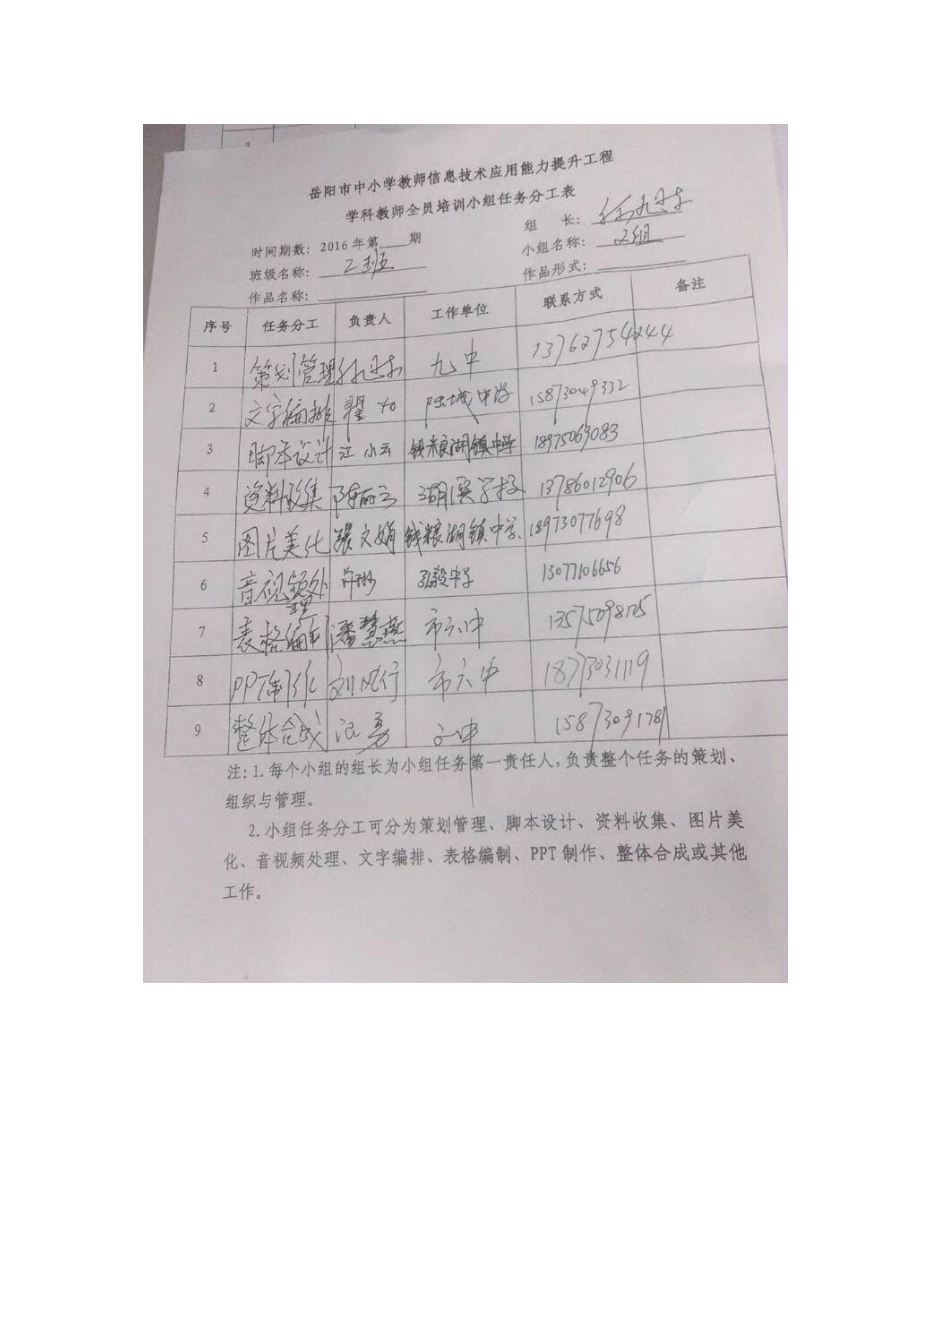 岳阳市中小学教师信息技术应用能力提升工程
学科教师全员培训小组任务分工表
时间期数：2016年第____期 组 长：
班级名称：2班 小组名称：2组
作品名称： 作品形式：
序号 任务分工 负责人 工作单位 联系方式 备注
1 策划管理 九中 13762754244
2 文字编排 翟 陆城中学 15873049332
3 脚本设计 江小云 钱粮湖镇中学 18975069083
4 资料收集 陈丽云 湖滨学校 13786012906
5 图片美化 张文娟 钱粮湖镇中学 18973077698
6 音视频处理 许琳 弘毅中学 13077106656
7 表格编制 潘慧燕 市六中 13575098125
8 PPT制作 刘凤行 市六中 18773031119
9 整体合成 勇 中 15873091781
注：1.每个小组的组长为小组任务第一责任人，负责整个任务的策划、
组织与管理。
2.小组任务分工可分为策划管理、脚本设计、资料收集、图片美
化、音视频处理、文字编排、表格编制、PPT 制作、整体合成或其他
工作。